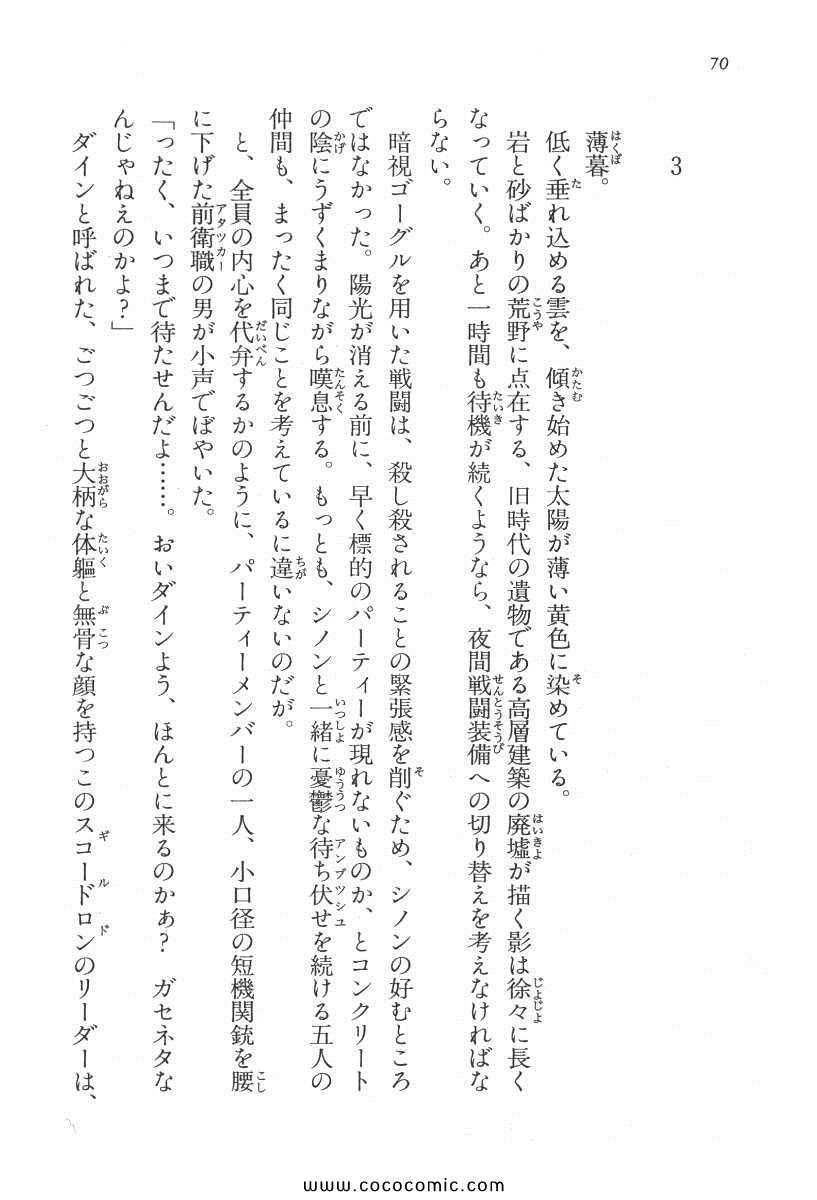 70
3
薄暮。
低く垂れ込める雲を、傾き始めた太陽が薄い黄色に染めている。
岩と砂ばかりの荒野に点在する、旧時代の遺物である高層建築の廃墟が描く影は徐々に長く
なっていく。あと一時間も待機が続くようなら、夜間戦闘装備への切り替えを考えなければな
らない。
暗視ゴーグルを用いた戦闘は、殺し殺されることの緊張感を削ぐため、シノンの好むところ
ではなかった。陽光が消える前に、早く標的のパーティーが現れないものか、とコンクリート
の陰にうずくまりながら嘆息する。もっとも、シノンと一緒に憂鬱な待ち伏せを続ける五人の
仲間も、まったく同じことを考えているに違いないのだが。
と、全員の内心を代弁するかのように、パーティーメンバーの一人、小口径の短機関銃を腰
に下げた前衛職の男が小声でぼやいた。
「ったく、いつまで待たせんだよ……。おいダインよう、ほんとに来るのかぁ？　ガセネタな
んじゃねえのかよ？」
ダインと呼ばれた、ごつごつと大柄な体軀と無骨な顔を持つこのスコードロンのリーダーは、
www.cococomic.com